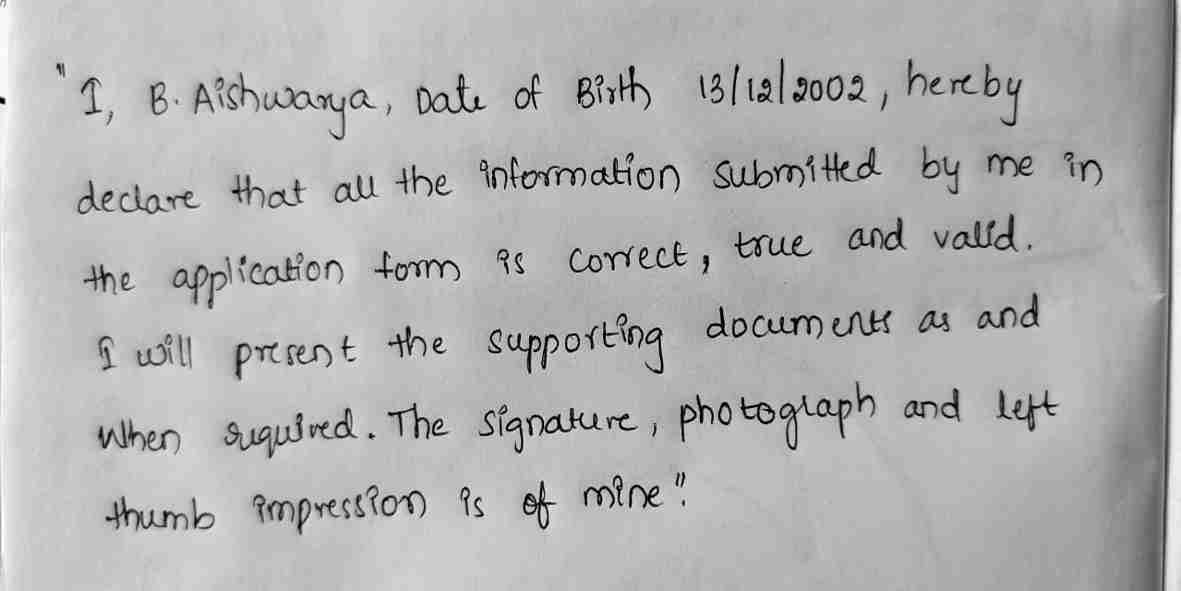 "I, B. Aishwarya, Date of Birth 13/12/2002, hereby
declare that all the information submitted by me in
the application form is correct, true and valid.
I will present the supporting documents as and
when required. The signature, photograph and left
thumb impression is of mine".